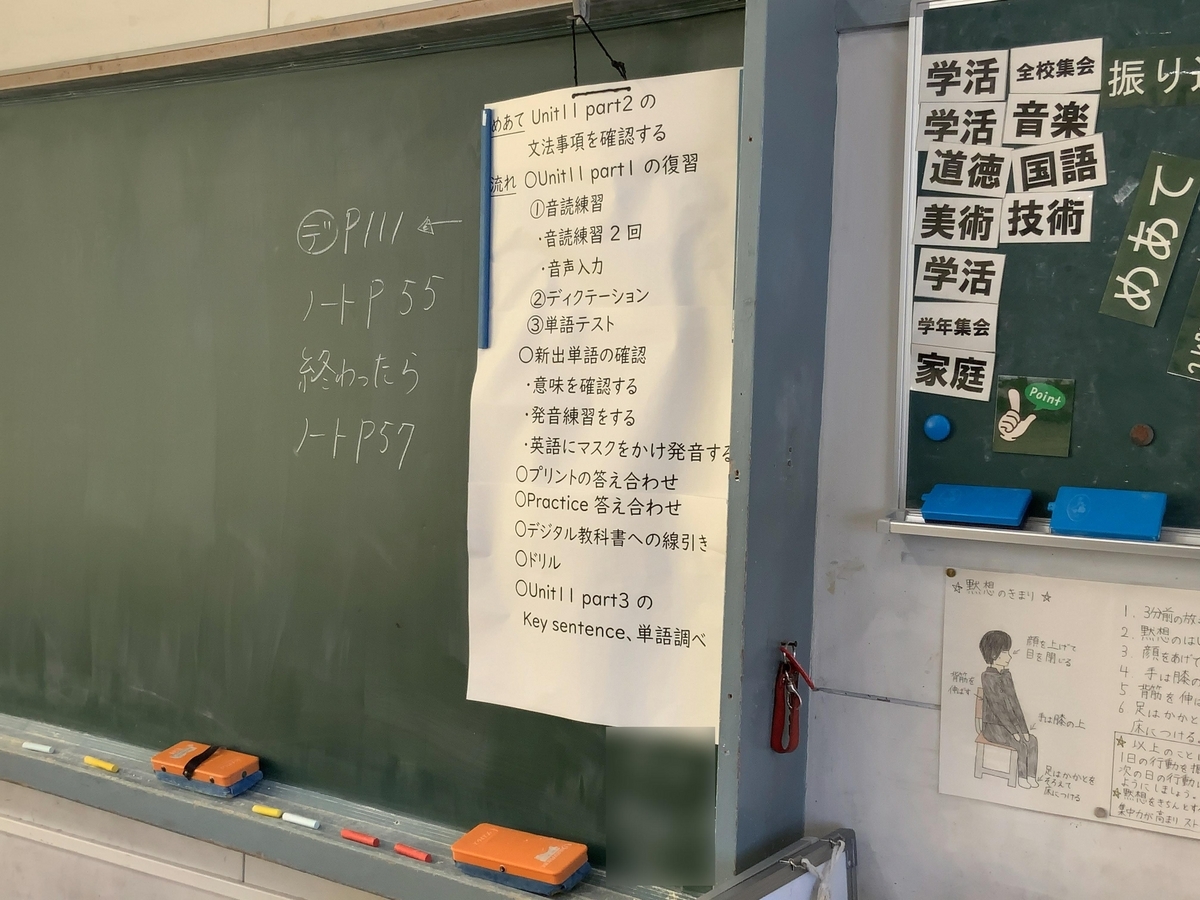 ㋢P111 ←
ノートP55
終わったら
ノートP57
めあて Unit11 part2 の
文法事項を確認する
流れ 〇Unit11 part1 の復習
①音読練習
・音読練習2回
・音声入力
②ディクテーション
③単語テスト
〇新出単語の確認
・意味を確認する
・発音練習をする
・英語にマスクをかけ発音する
〇プリントの答え合わせ
〇Practice 答え合わせ
〇デジタル教科書への線引き
〇ドリル
〇Unit11 part3 の
Key sentence、単語調べ
学活 全校集会
学活 音楽
道徳 国語
美術 技術
学活
学年集会
家庭
振り
めあて
Point
☆黙想のきまり☆
顔を上げて
目を閉じる
背筋を
伸ばす
手は膝の上
足はかかとを
そろえて
床につける
1. 3分前の放
2. 黙想のはじ
3. 顔をあげて
4 手は膝の
5 背筋を伸
6 足はかかと
床につける。
☆以上のこと
1日の行動を
次の日の行動に
ようにしましょう。
☆黙想をきちんとす
集中力が高まり